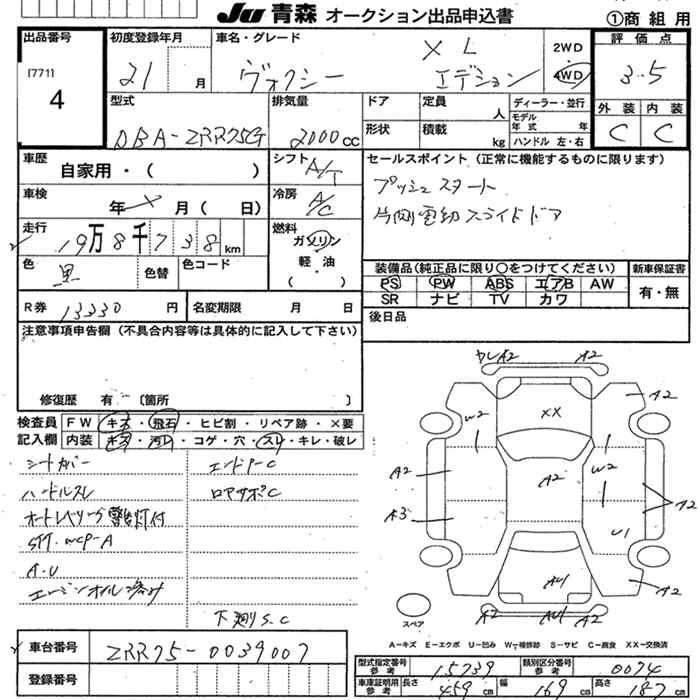 JU 青森 オークション出品申込書
①商 組 用
出品番号
[771]
4
初度登録年月
21 月
車名・グレード
ヴォクシー
X L
エデション
2WD
4WD
評価点
3.5
外装 内装
C C
型式
DBA-ZRR75G
排気量
2000cc
ドア
形状
定員 人
積載 kg
ディーラー・並行
モデル
年 式 年
ハンドル 左・右
車歴
自家用・( )
シフト A/T
車検
年 X 月( 日)
冷房 A/C
セールスポイント(正常に機能するものに限ります)
プッシュスタート
片側電動スライドドア
走行
19万8千738km
燃料
ガソリン
軽 油
( )
色 黒
色替
色コード
装備品(純正品に限り○をつけてください)
PS PW ABS エアB AW
SR ナビ TV カワ
新車保証書
有・無
R券 13330 円
名変期限 月 日
後日品
注意事項申告欄(不具合内容等は具体的に記入して下さい)
修復歴 有 〔箇所 〕
検査員
記入欄
FW キズ・飛石・ヒビ割・リペア跡・×要
内装 キズ・汚レ・コゲ・穴・スレ・キレ・破レ
シートカバー
ハンドルスレ
オートレベリング警告灯付
A-U
エンジンオイル滲み
ロアサポC
下廻りS.C
A2
A2
A2
W2
XX
A2
A2
W2
A2
A3
U1
AU1
A2
A2
AU1
A2
スペア
A-キズ E-エクボ U-凹み W-補修跡 S-サビ C-腐食 XX-交換済
車台番号 ZRR75-0039007
登録番号
型式指定番号
参 考
15739
類別区分番号
参 考
0074
車庫証明用
参 考
長さ 459cm
幅 169cm
高さ 187cm